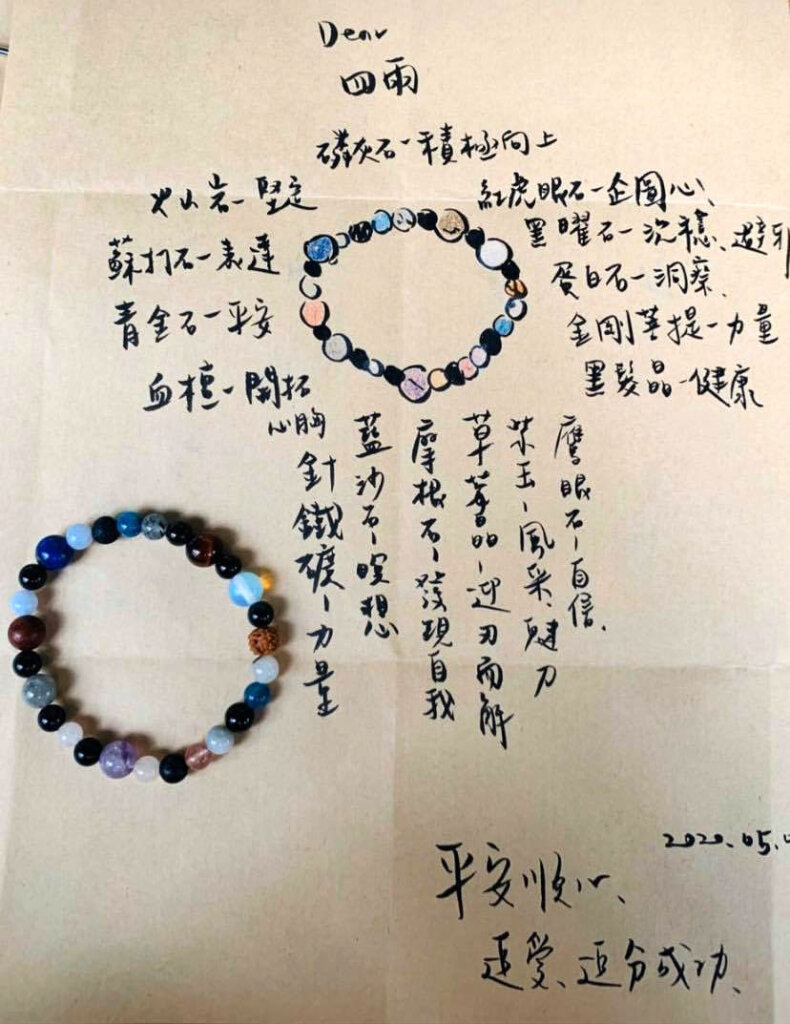 Dear
四雨
磷灰石-積極向上
火山岩-堅定
蘇打石-表達
青金石-平安
血檀-開拓
心胸
紅虎眼石-企圖心、
黑曜石-沉穩、避邪
蛋白石-洞察、
金剛菩提-力量
黑髮晶-健康
鷹眼石-自信、
紫玉-風采、魅力
草莓晶-迎刃而解
摩根石-發現自我
藍沙石-暝想
針鐵礦-力量
2020.05.
平安順心、
追愛、追分成功、